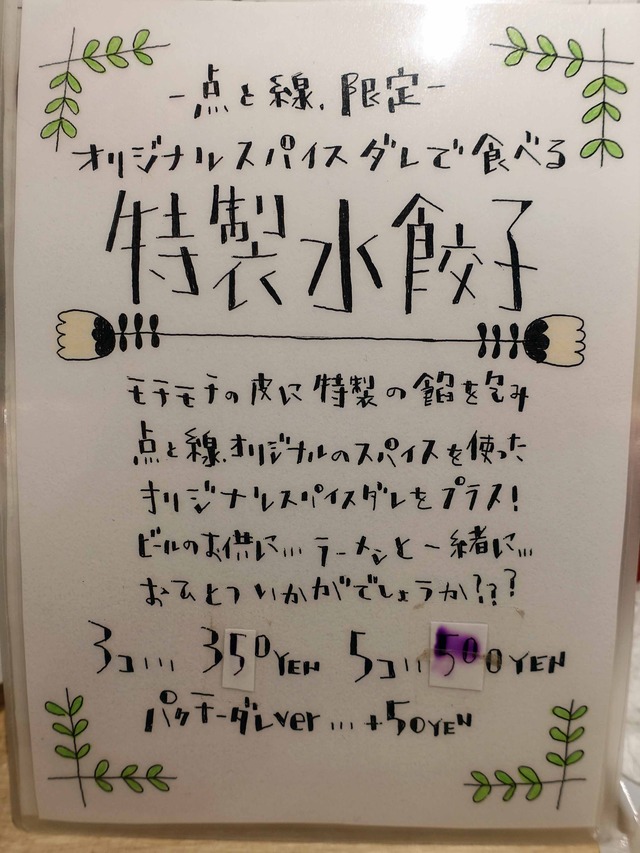 -点と線.限定-
オリジナルスパイスダレで食べる
特製水餃子
モチモチの皮に特製の餡を包み
点と線.オリジナルのスパイスを使った
オリジナルスパイスダレをプラス!
ビールのお供に... ラーメンと一緒に...
おひとついかがでしょうか???
3コ... 350YEN 5コ... 500YEN
パクチーダレver... +50YEN